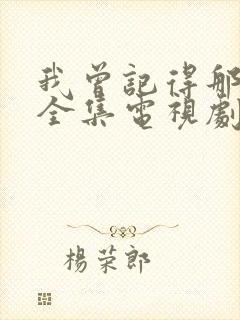 我曾記得那
全集電視劇
楊荣郎